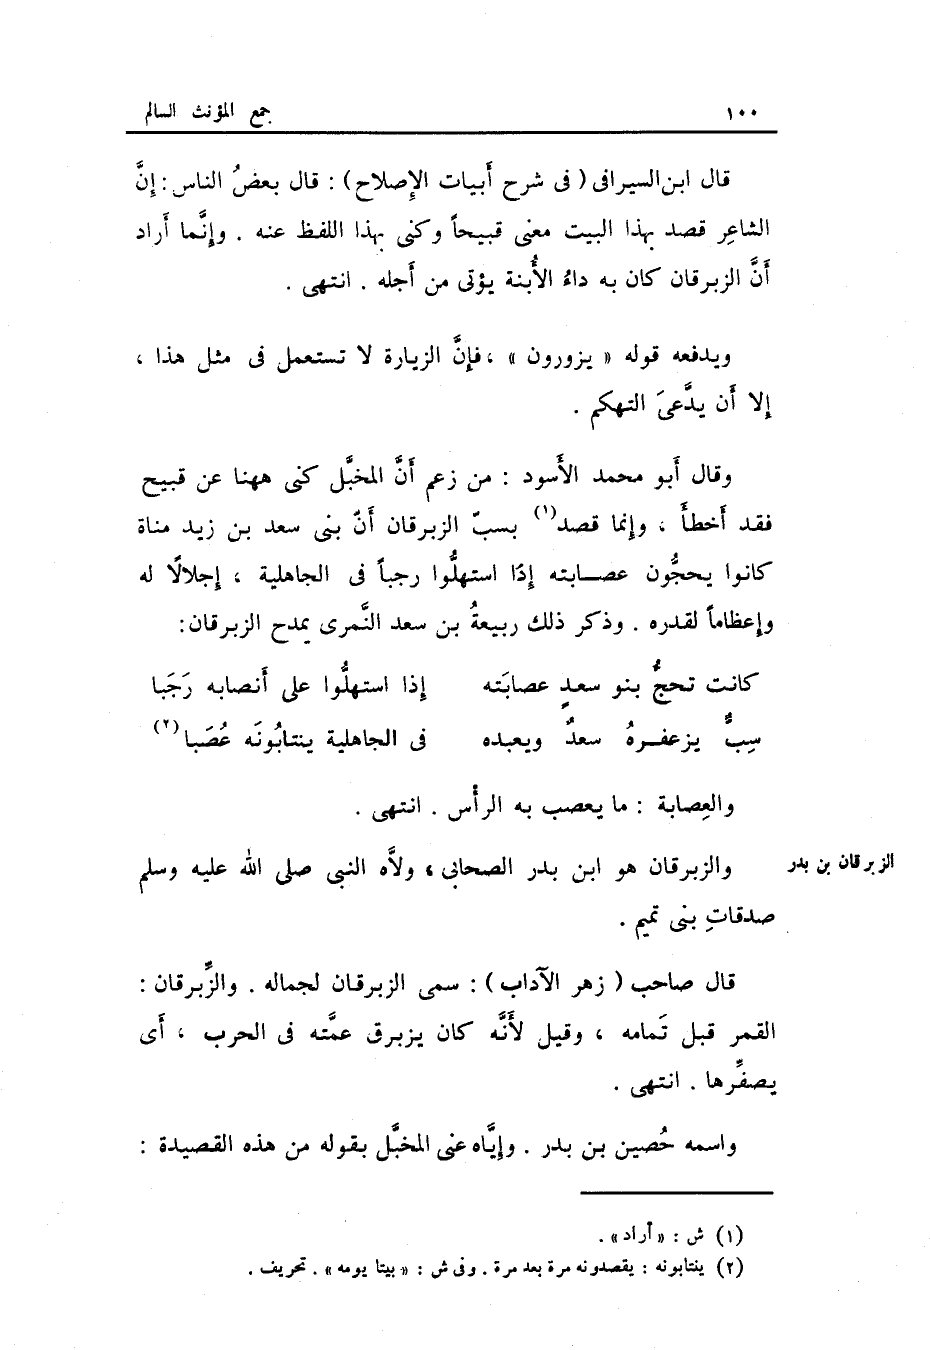 ١٠٠ جمع المؤنث السالم
قال ابن السيرافى ( فى شرح أبيات الإِصلاح ) : قال بعضُ الناس : إنَّ
الشاعِر قصد بهذا البيت معنى قبيحاً وكنى بهذا اللفظ عنه . وإنَّما أراد
أنَّ الزبرقان كان به داءُ الأُبنة يؤتى من أجله . انتهى .
ويدفعه قوله « يزورون » ، فإنَّ الزيارة لا تستعمل فى مثل هذا ،
إلا أن يدَّعىَ التهكم .
وقال أبو محمد الأسود : من زعم أنَّ المخبَّل كنى ههنا عن قبيح
فقد أخطأ ، وإنما قصد(١) بسبّ الزبرقان أنّ بنى سعد بن زيد مناة
كانوا يحجُّون عصابته إذا استهلُّوا رجباً فى الجاهلية ، إجلالًا له
وإعظاماً لقدره . وذكر ذلك ربيعةُ بن سعد النَّمرى يمدح الزبرقان :
كانت تحجُّ بنو سعدٍ عصابَته إذا استهلُّوا على أنصابه رَجَبا
سِبٌّ يزعفرهُ سعدٌ ويعبده فى الجاهلية ينتابُونَه عُصَبا(٢)
والعِصابة : ما يعصب به الرأس . انتهى .
الزبرقان بن بدر
والزبرقان هو ابن بدر الصحابى ، ولاَّه النبى صلى الله عليه وسلم
صدقاتِ بنى تميم .
قال صاحب ( زهر الآداب ) : سمى الزبرقان لجماله . والزِّبرقان :
القمر قبل تَمامه ، وقيل لأنَّه كان يزبرق عمَّته فى الحرب ، أى
يصفِّرها . انتهى .
واسمه حُصين بن بدر . وإيَّاه عنى المخبَّل بقوله من هذه القصيدة :
(١) ش : « أراد » .
(٢) ينتابونه : يقصدونه مرة بعد مرة . وفى ش : « بيتا يومه » . تحريف .